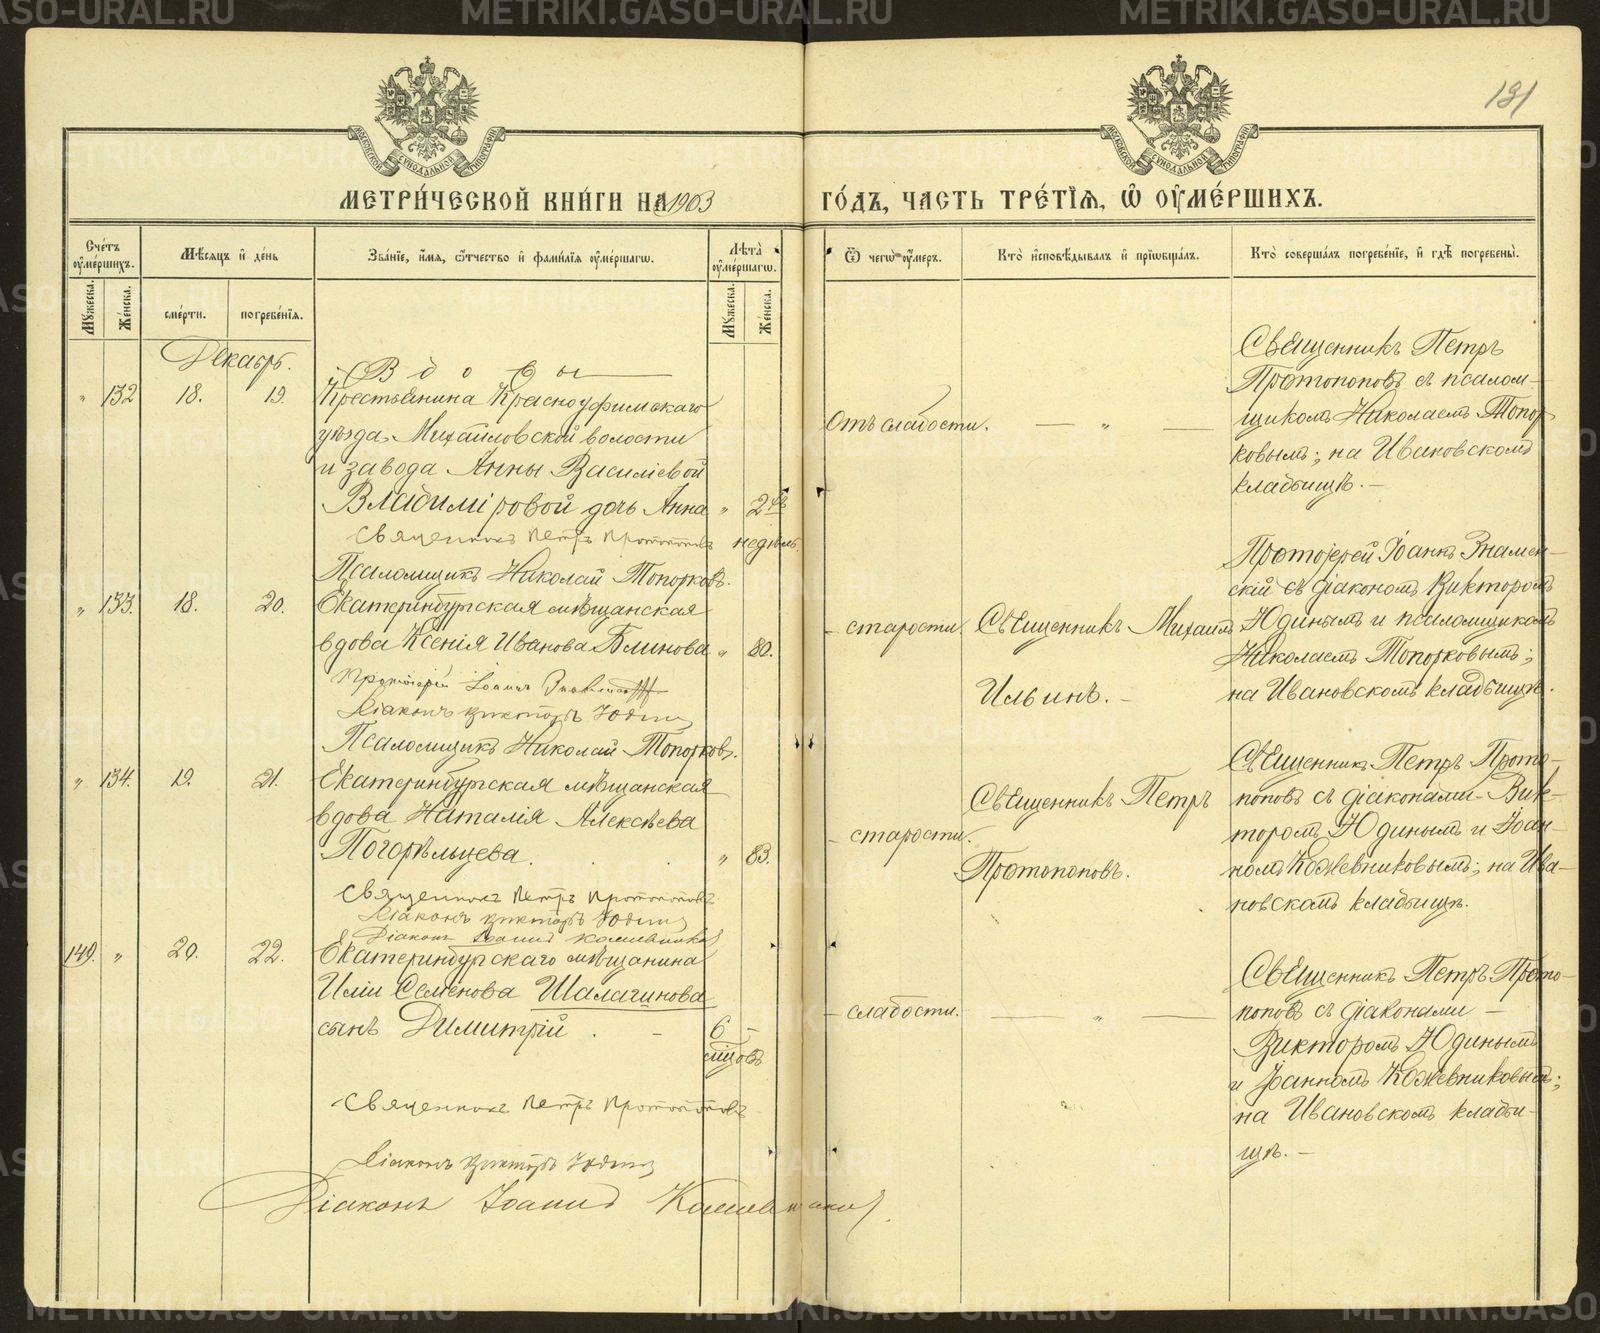 191
МОСКОВСКОЙ СѴНОДАЛЬНОЙ ТИПОГРАФІИ
МОСКОВСКОЙ СѴНОДАЛЬНОЙ ТИПОГРАФІИ
МЕТРИ́ЧЕСКОЙ КНИ́ГИ НА 1903
ГО́ДЪ, ЧАСТЬ ТРЕ́ТІѦ, Ѡ ОУМЕ́РШИХЪ.
Счетъ оумершихъ.
Мѣсяцъ и день
Званіе, имя, отчество и фамилія оумершагѡ.
Лѣта оумершагѡ.
Ѿ чегѡ оумеръ.
Кто исповѣдывалъ и пріѡбщалъ.
Кто совершалъ погребеніе, и гдѣ погребены.
Мужеска.
Женска.
смерти.
погребенія.
Мужеска.
Женска.
Декабрь.
" 132 18. 19.
Вдовы
Крестьянина Красноуфимскаго
уѣзда, Михайловской волости
и завода Анны Василіевой
Владиміровой дочь Анна " 2хъ
недѣль
Священникъ Петръ Протопоповъ
Псаломщикъ Николай Топорковъ.
отъ слабости. — " —
Священникъ Петръ
Протопоповъ съ псалом-
щикомъ Николаемъ Топор-
ковымъ; на Ивановскомъ
кладбищѣ. —
" 133. 18. 20.
Екатеринбургская мѣщанская
вдова Ксенія Иванова Блинова " 80.
Протоіерей Іоаннъ Знаменскій
Діаконъ Викторъ Юдинъ
Псаломщикъ Николай Топорковъ.
старости.
Священникъ Михаилъ
Ильинъ. —
Протоіерей Іоаннъ Знамен-
скій съ діакономъ Викторомъ
Юдинымъ и псаломщикомъ
Николаемъ Топорковымъ;
на Ивановскомъ кладбищѣ.
" 134. 19. 21.
Екатеринбургская мѣщанская
вдова Наталія Алексѣева
Погорѣльцева. " 83.
Священникъ Петръ Протопоповъ
Діаконъ Викторъ Юдинъ
Діаконъ Іоаннъ Кожевниковъ
старости.
Священникъ Петръ
Протопоповъ.
Священникъ Петръ Прото-
поповъ съ діаконами Вик-
торомъ Юдинымъ и Іоан-
номъ Кожевниковымъ; на Ива-
новскомъ кладбищѣ.
149. " 20. 22.
Екатеринбургскаго мѣщанина
Иліи Семенова Шалагинова
сынъ Димитрій. — 6 —
мѣцовъ
Священникъ Петръ Протопоповъ
Діаконъ Викторъ Юдинъ
Діаконъ Іоаннъ Кожевниковъ.
слабости. — " —
Священникъ Петръ Прото-
поповъ съ діаконами —
Викторомъ Юдинымъ
и Іоанномъ Кожевниковымъ;
на Ивановскомъ кладби-
щѣ. —
METRIKI.GASO-URAL.RU